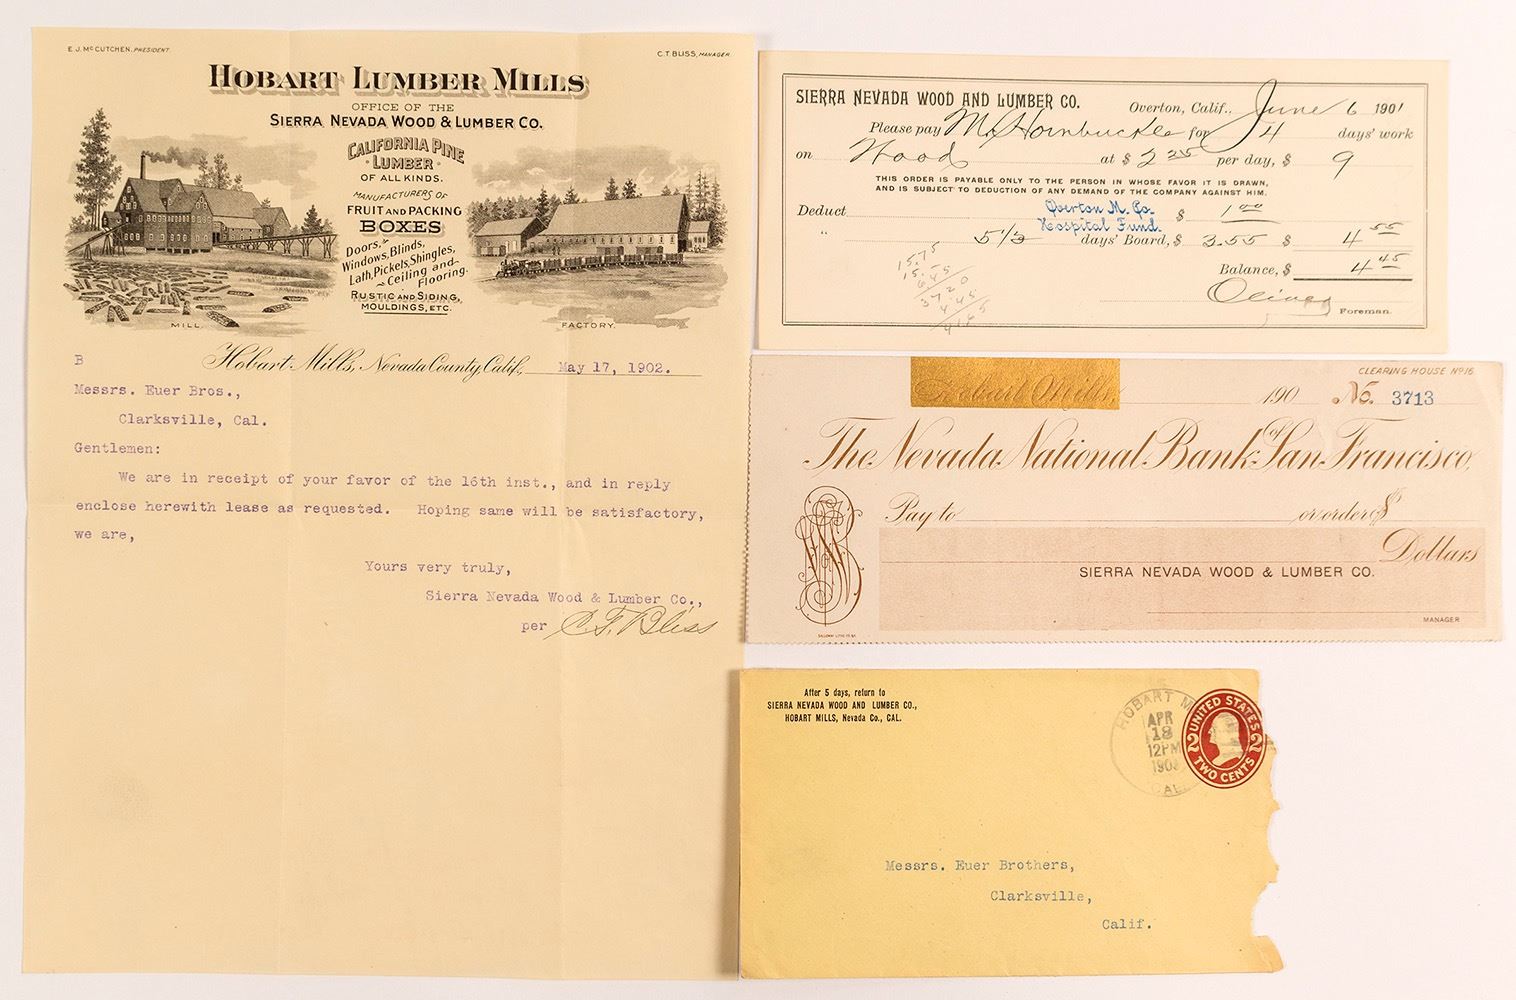 E. J. McCUTCHEN, PRESIDENT.
C. T. BLISS, MANAGER.
HOBART LUMBER MILLS
OFFICE OF THE
SIERRA NEVADA WOOD & LUMBER CO.
CALIFORNIA PINE
LUMBER
OF ALL KINDS.
MANUFACTURERS OF
FRUIT AND PACKING
BOXES
Doors,
Windows, Blinds,
Lath, Pickets, Shingles,
Ceiling and
Flooring.
RUSTIC AND SIDING,
MOULDINGS, ETC.
MILL.
FACTORY.
B
Hobart Mills, Nevada County, Calif., May 17, 1902.
Messrs. Euer Bros.,
Clarksville, Cal.
Gentlemen:
We are in receipt of your favor of the 16th inst., and in reply
enclose herewith lease as requested. Hoping same will be satisfactory,
we are,
Yours very truly,
Sierra Nevada Wood & Lumber Co.,
per C. T. Bliss
SIERRA NEVADA WOOD AND LUMBER CO.
Overton, Calif., June 6 1901
Please pay M. Hornbuckle for 4 days' work
on Wood at $ 2 25 per day, $ 9
THIS ORDER IS PAYABLE ONLY TO THE PERSON IN WHOSE FAVOR IT IS DRAWN,
AND IS SUBJECT TO DEDUCTION OF ANY DEMAND OF THE COMPANY AGAINST HIM.
Deduct Overton M. Co. $ 1 00
Hospital Fund.
" 5 1/3 days' Board, $ 3.55 $ 4 55
Balance, $ 4 45
15.75
15.
6 45
37 20
4.45
41 65
Foreman.
Hobart Mills, 190 No. 3713
CLEARING HOUSE No 16
The Nevada National Bank of San Francisco,
Pay to or order $
Dollars
SIERRA NEVADA WOOD & LUMBER CO.
MANAGER
After 5 days, return to
SIERRA NEVADA WOOD AND LUMBER CO.,
HOBART MILLS, Nevada Co., CAL.
HOBART M
APR
18
12PM
CAL
UNITED STATES
2 2
TWO CENTS
Messrs. Euer Brothers,
Clarksville,
Calif.